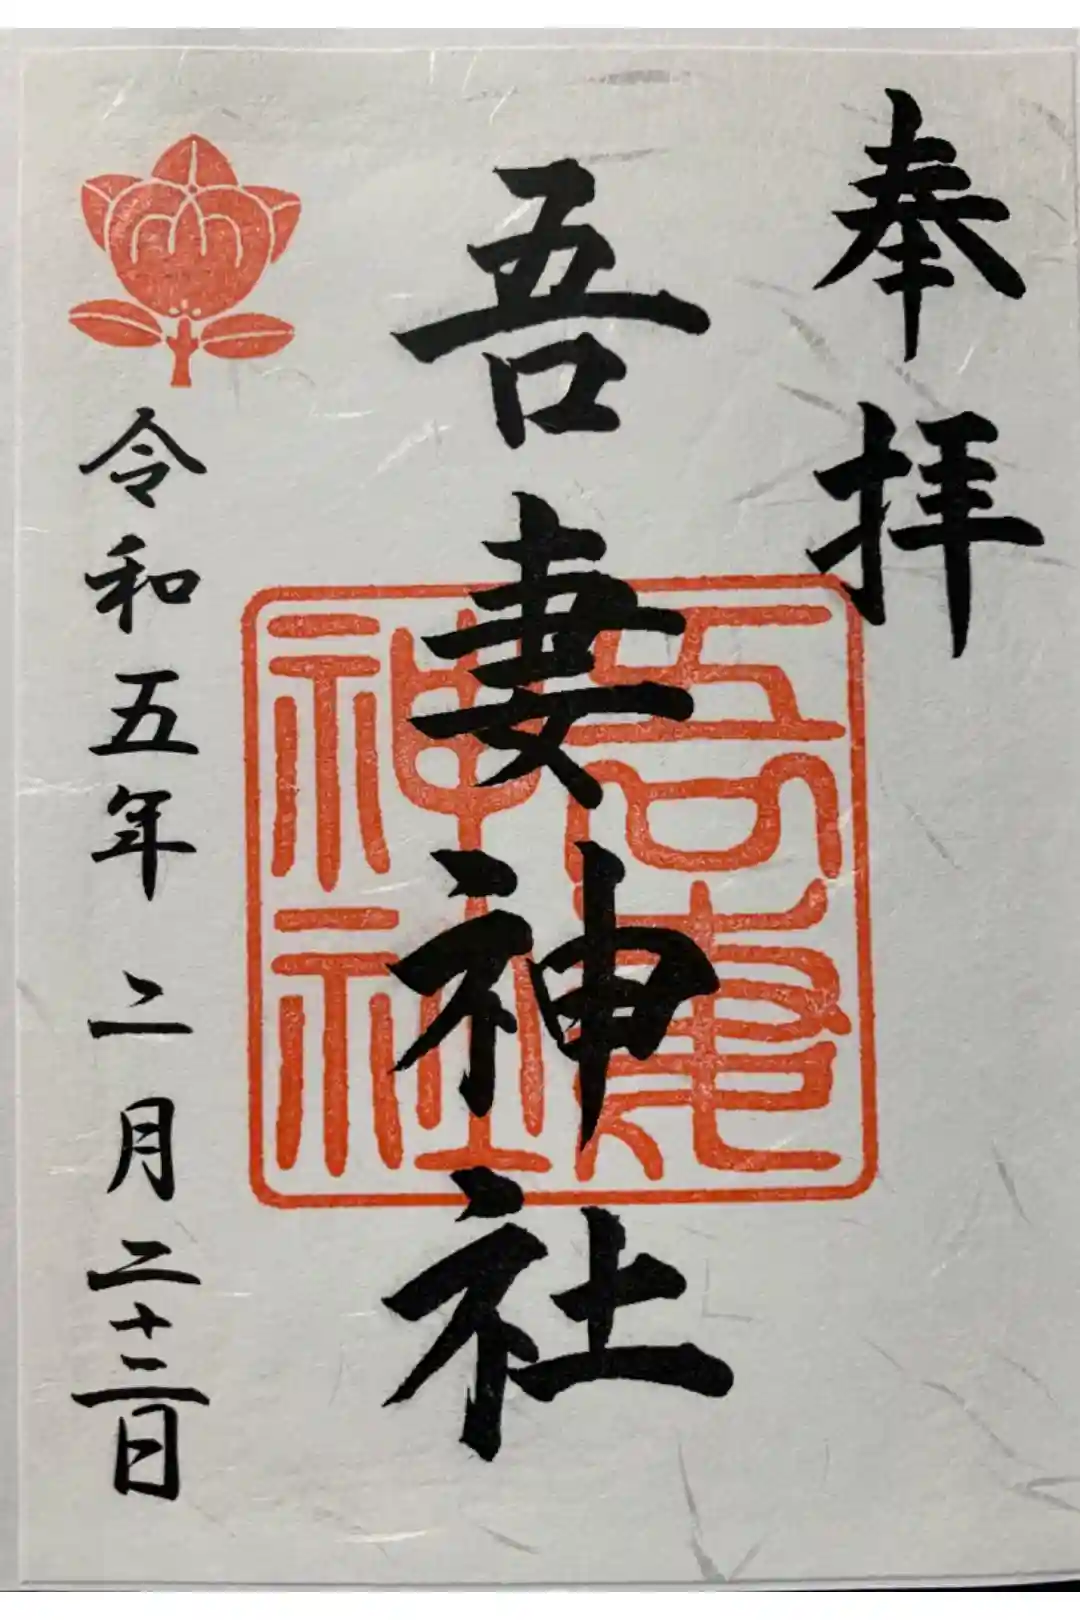 奉拝
吾妻神社
吾妻神社
令和五年二月二十三日